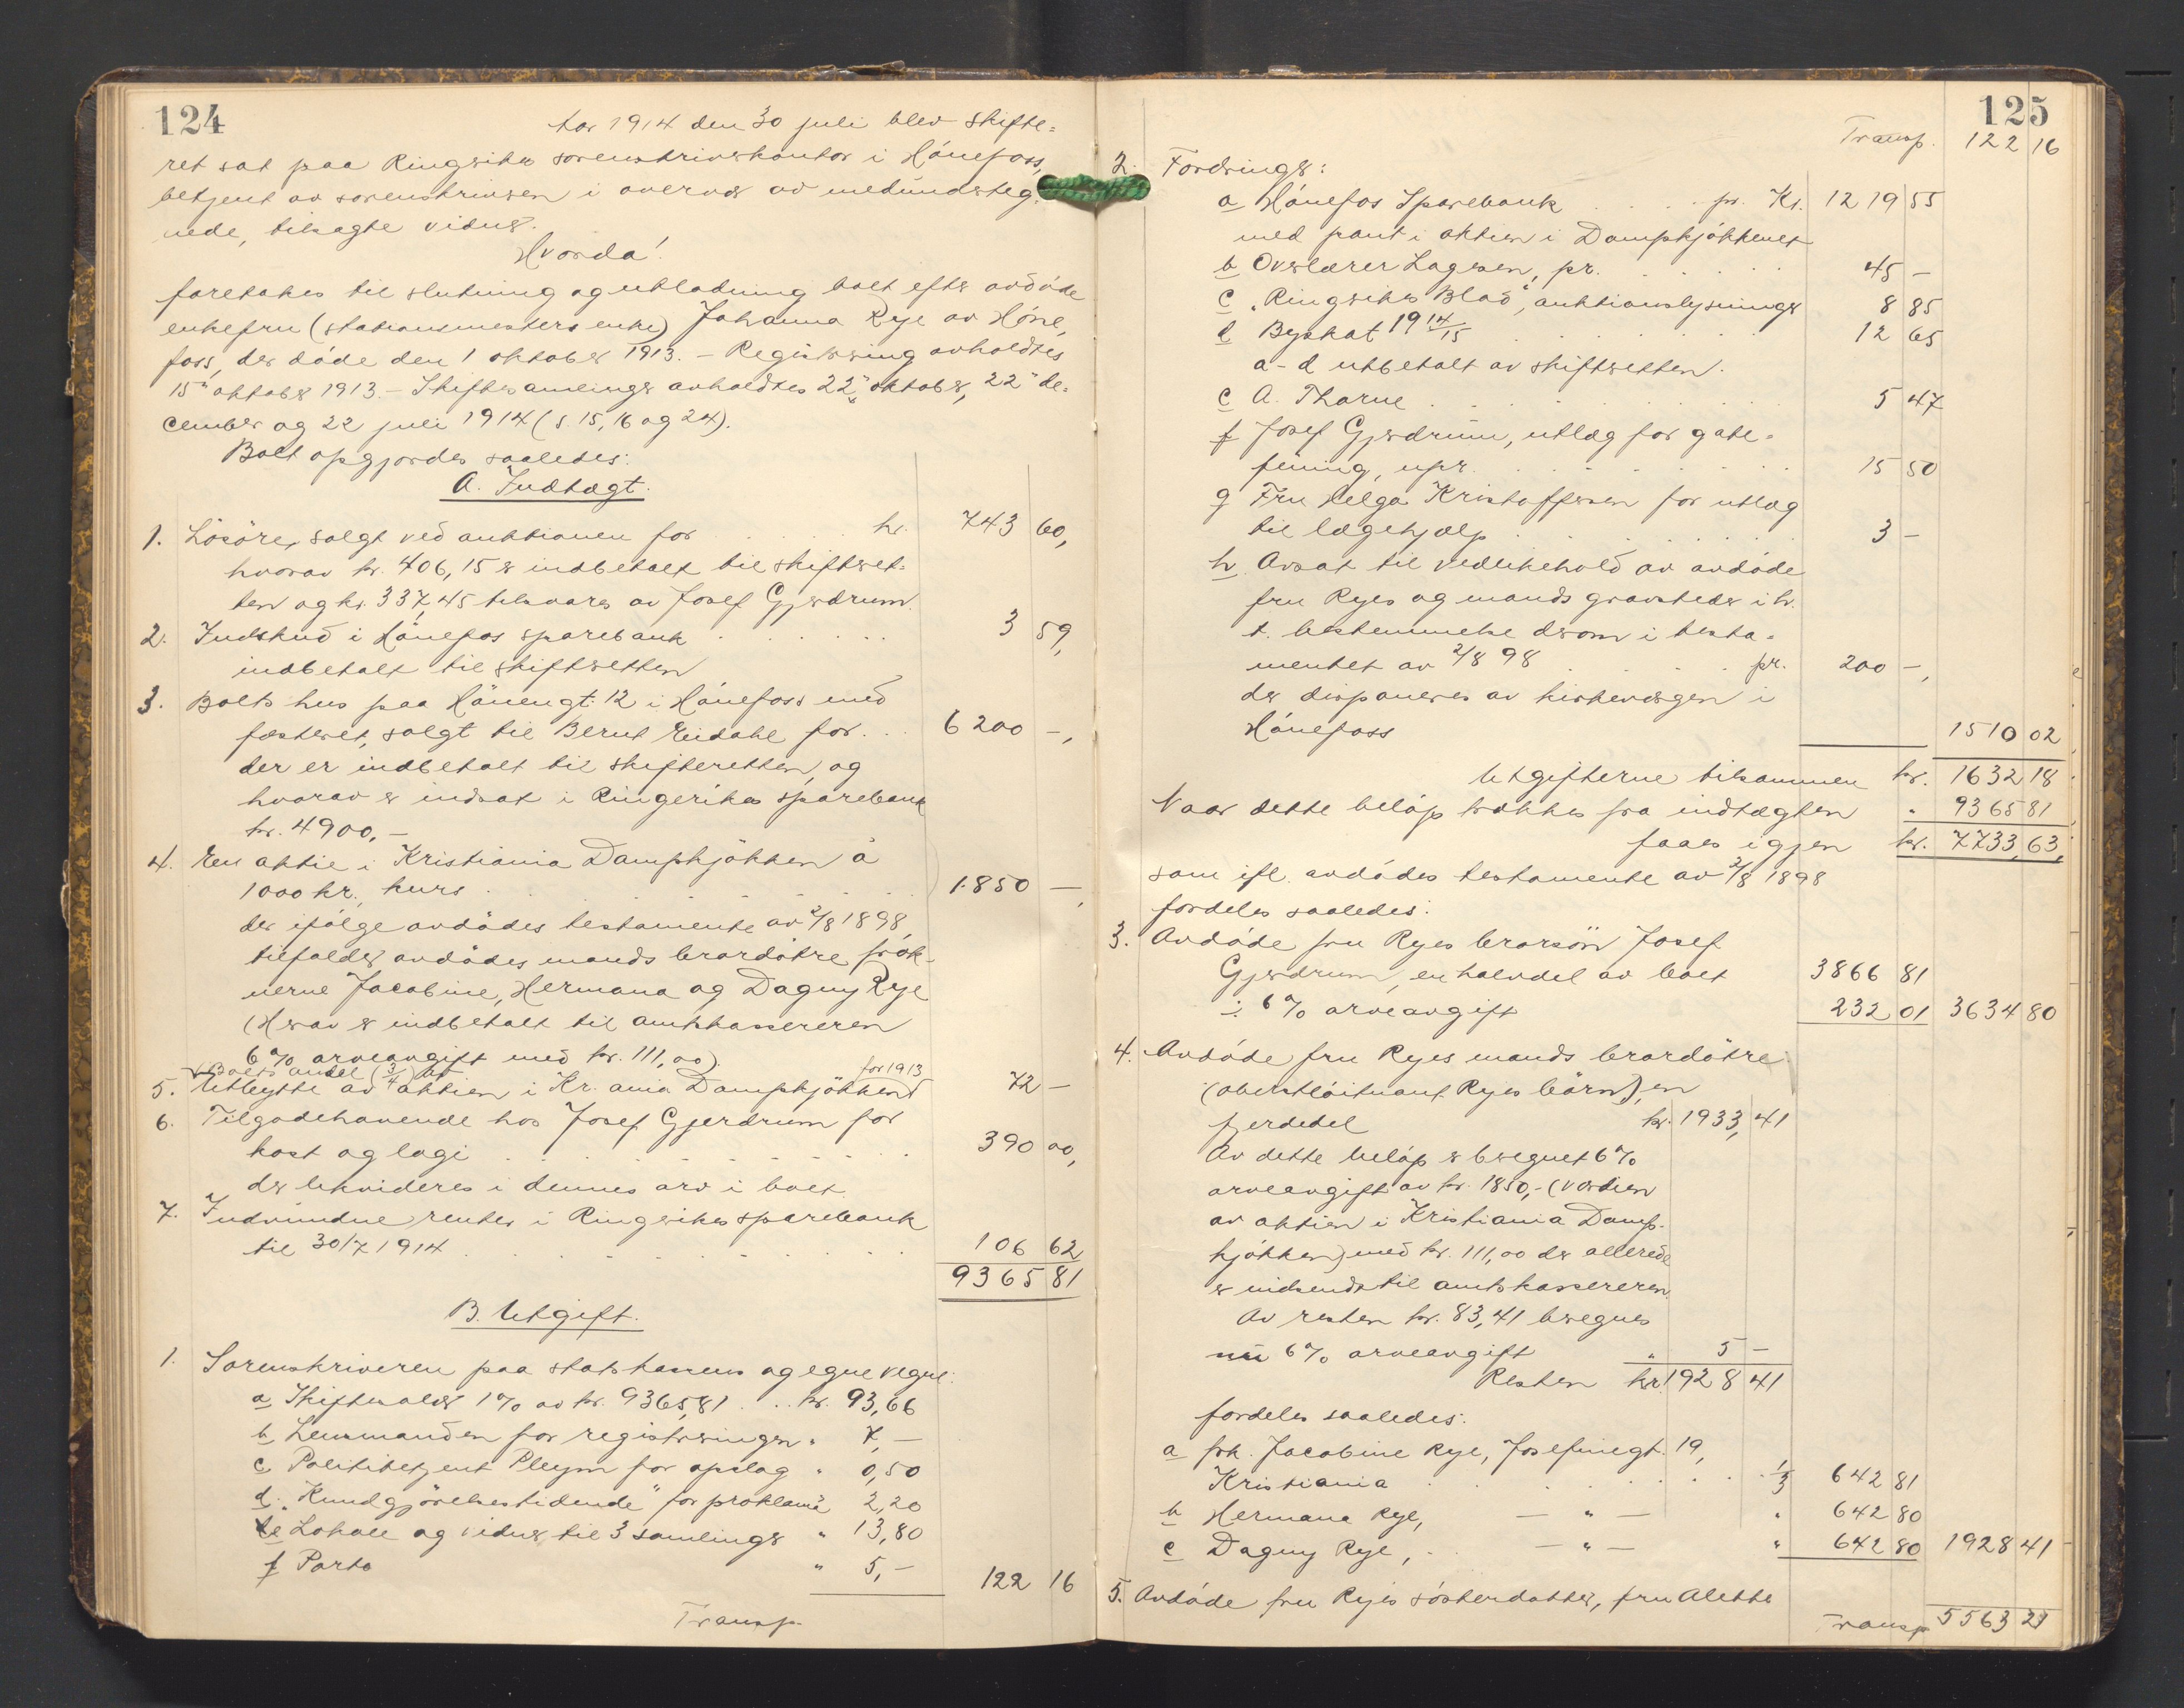 124
Aar 1914 den 30 juli blev skifte=
ret sat paa Ringerikes sorenskriverkontor i Hönefoss,
betjent av sorenskriveren i overvær av medunderteg=
nede, tilsagte vidner.
Hvorda!
foretokes til slutning og utlodning boet efter avdöde
enkefru (stationsmesters enke) Johanna Rye av Höne,
foss, der döde den 1 oktober 1913. – Registrering avholdtes
15" oktober 1913. – Skiftesamlinger avholdtes 22" oktober, 22" de=
cember og 22 juli 1914 (s. 15, 16 og 24).
Boet opgjordes saaledes:
A. Indtægt.
1. Lösöre, solgt ved auktionen for . . . . kr. 743 60,
hvorav kr. 406,15 er indbetalt til skifteret=
ten og kr. 337,45 tilsvares av Josef Gjerdrum.
2. Indskud i Hönefos sparebank . . . . . . 3 59,
indbetalt til skifteretten
3. Boets hus paa Hönengt. 12 i Hönefoss med
festeret, solgt til Bernt Eidahl for . . . 6200 –,
der er indbetalt til skifteretten, og
hvorav er indsat i Ringerikes sparebank
kr. 4900,–
4. En aktie i Kristiania Dampkjökken à
1000 kr., kurs . . . . . . . . . 1.850 –,
der ifölge avdödes testamente av 2/8 1898,
tilfalder avdödes mands brordötre frök-
nerne Jacobine, Hermana og Dagny Rye
(Herav er indbetalt til amtskassereren
6% arveavgift med kr. 111,00).
Boets andel (3/4) av for 1913
5. Utbytte av aktien i Kr.ania Dampkjökken 72 –
6. Tilgodehavende hos Josef Gjerdrum for
kost og logi . . . . . . . . . . 390 00,
der likvideres i dennes arv i boet.
7. Indvundne renter i Ringerikes sparebank
til 30/7 1914 . . . . . . . . . . 106 62
9365 81
B. Utgift.
1. Sorenskriveren paa statskassens og egne vegne:
a Skiftesalær 1% av kr. 9365,81 . . . kr. 93,66
b Lensmanden for registreringen " 7,–
c Politibetjent Pleym for opslag " 0,50
d. "Kundgjörelsestidende" for proklama 2,20
e Lokale og vidner til 3 samlinger " 13,80
f Porto " 5,– 122 16
Transp.
125
Transp. 122 16
2. Fordringer:
a Hönefos Sparebank . . . . pr. Kr. 1219 55
med pant i aktien i Dampkjökkenet
b Overlærer Lagesen, pr. . . . . . . 45 –
c "Ringerikes Blad", auktionslysninger 8 85
d Byskat 1914/15 . . . . . . . 12 65
a-d utbetalt av skifteretten.
e A. Thorne . . . . . . . . . . . 5 47
f Josef Gjerdrum, utlæg for gate=
feining, upr. . . . . . . . . . . 15 50
g Fru Helga Kristoffersen for utlæg
til lægehjælp . . . . . . . . . 3 –
h. Avsat til vedlikehold av avdöde
fru Ryes og mands gravsteder i h.
t. bestemmelse derom i testa=
mentet av 2/8 98 . . . . . pr. 200 –,
der disponeres av kirkevergen i
Hönefoss 1510 02
Utgifterne tilsammen kr. 1632 18
Naar dette belöp trækkes fra indtægten " 9365 81
faaes igjen kr. 7733,63,
som ifl. avdödes testamente av 2/8 1898
fordeles saaledes:
3. Avdöde fru Ryes brorsön Josef
Gjerdrum, en halvdel av boet 3866 81
÷ 6% arveavgift 232 01 3634 80
4. Avdöde fru Ryes mands brordötre
(oberstlöitnant Ryes börn), en
fjerdedel kr. 1933,41
Av dette belöp er beregnet 6%
arveavgift av kr. 1850,– (værdien
av aktien i Kristiania Damp-
kjökken) med kr. 111,00 der allerede
er indsendt til amtskassereren.
Av resten kr. 83,41 beregnes
nu 6% arveavgift " 5 –
Resten kr. 1928 41
fordeles saaledes:
a frk. Jacobine Rye, Josefinegt. 19,
Kristiania . . . . . . . 1/3 642 81
b Hermana Rye, – " – " 642 80
c Dagny Rye, – " – " 642 80 1928 41
5. Avdöde fru Ryes sösterdatter, fru Alette
Transp 5563 21